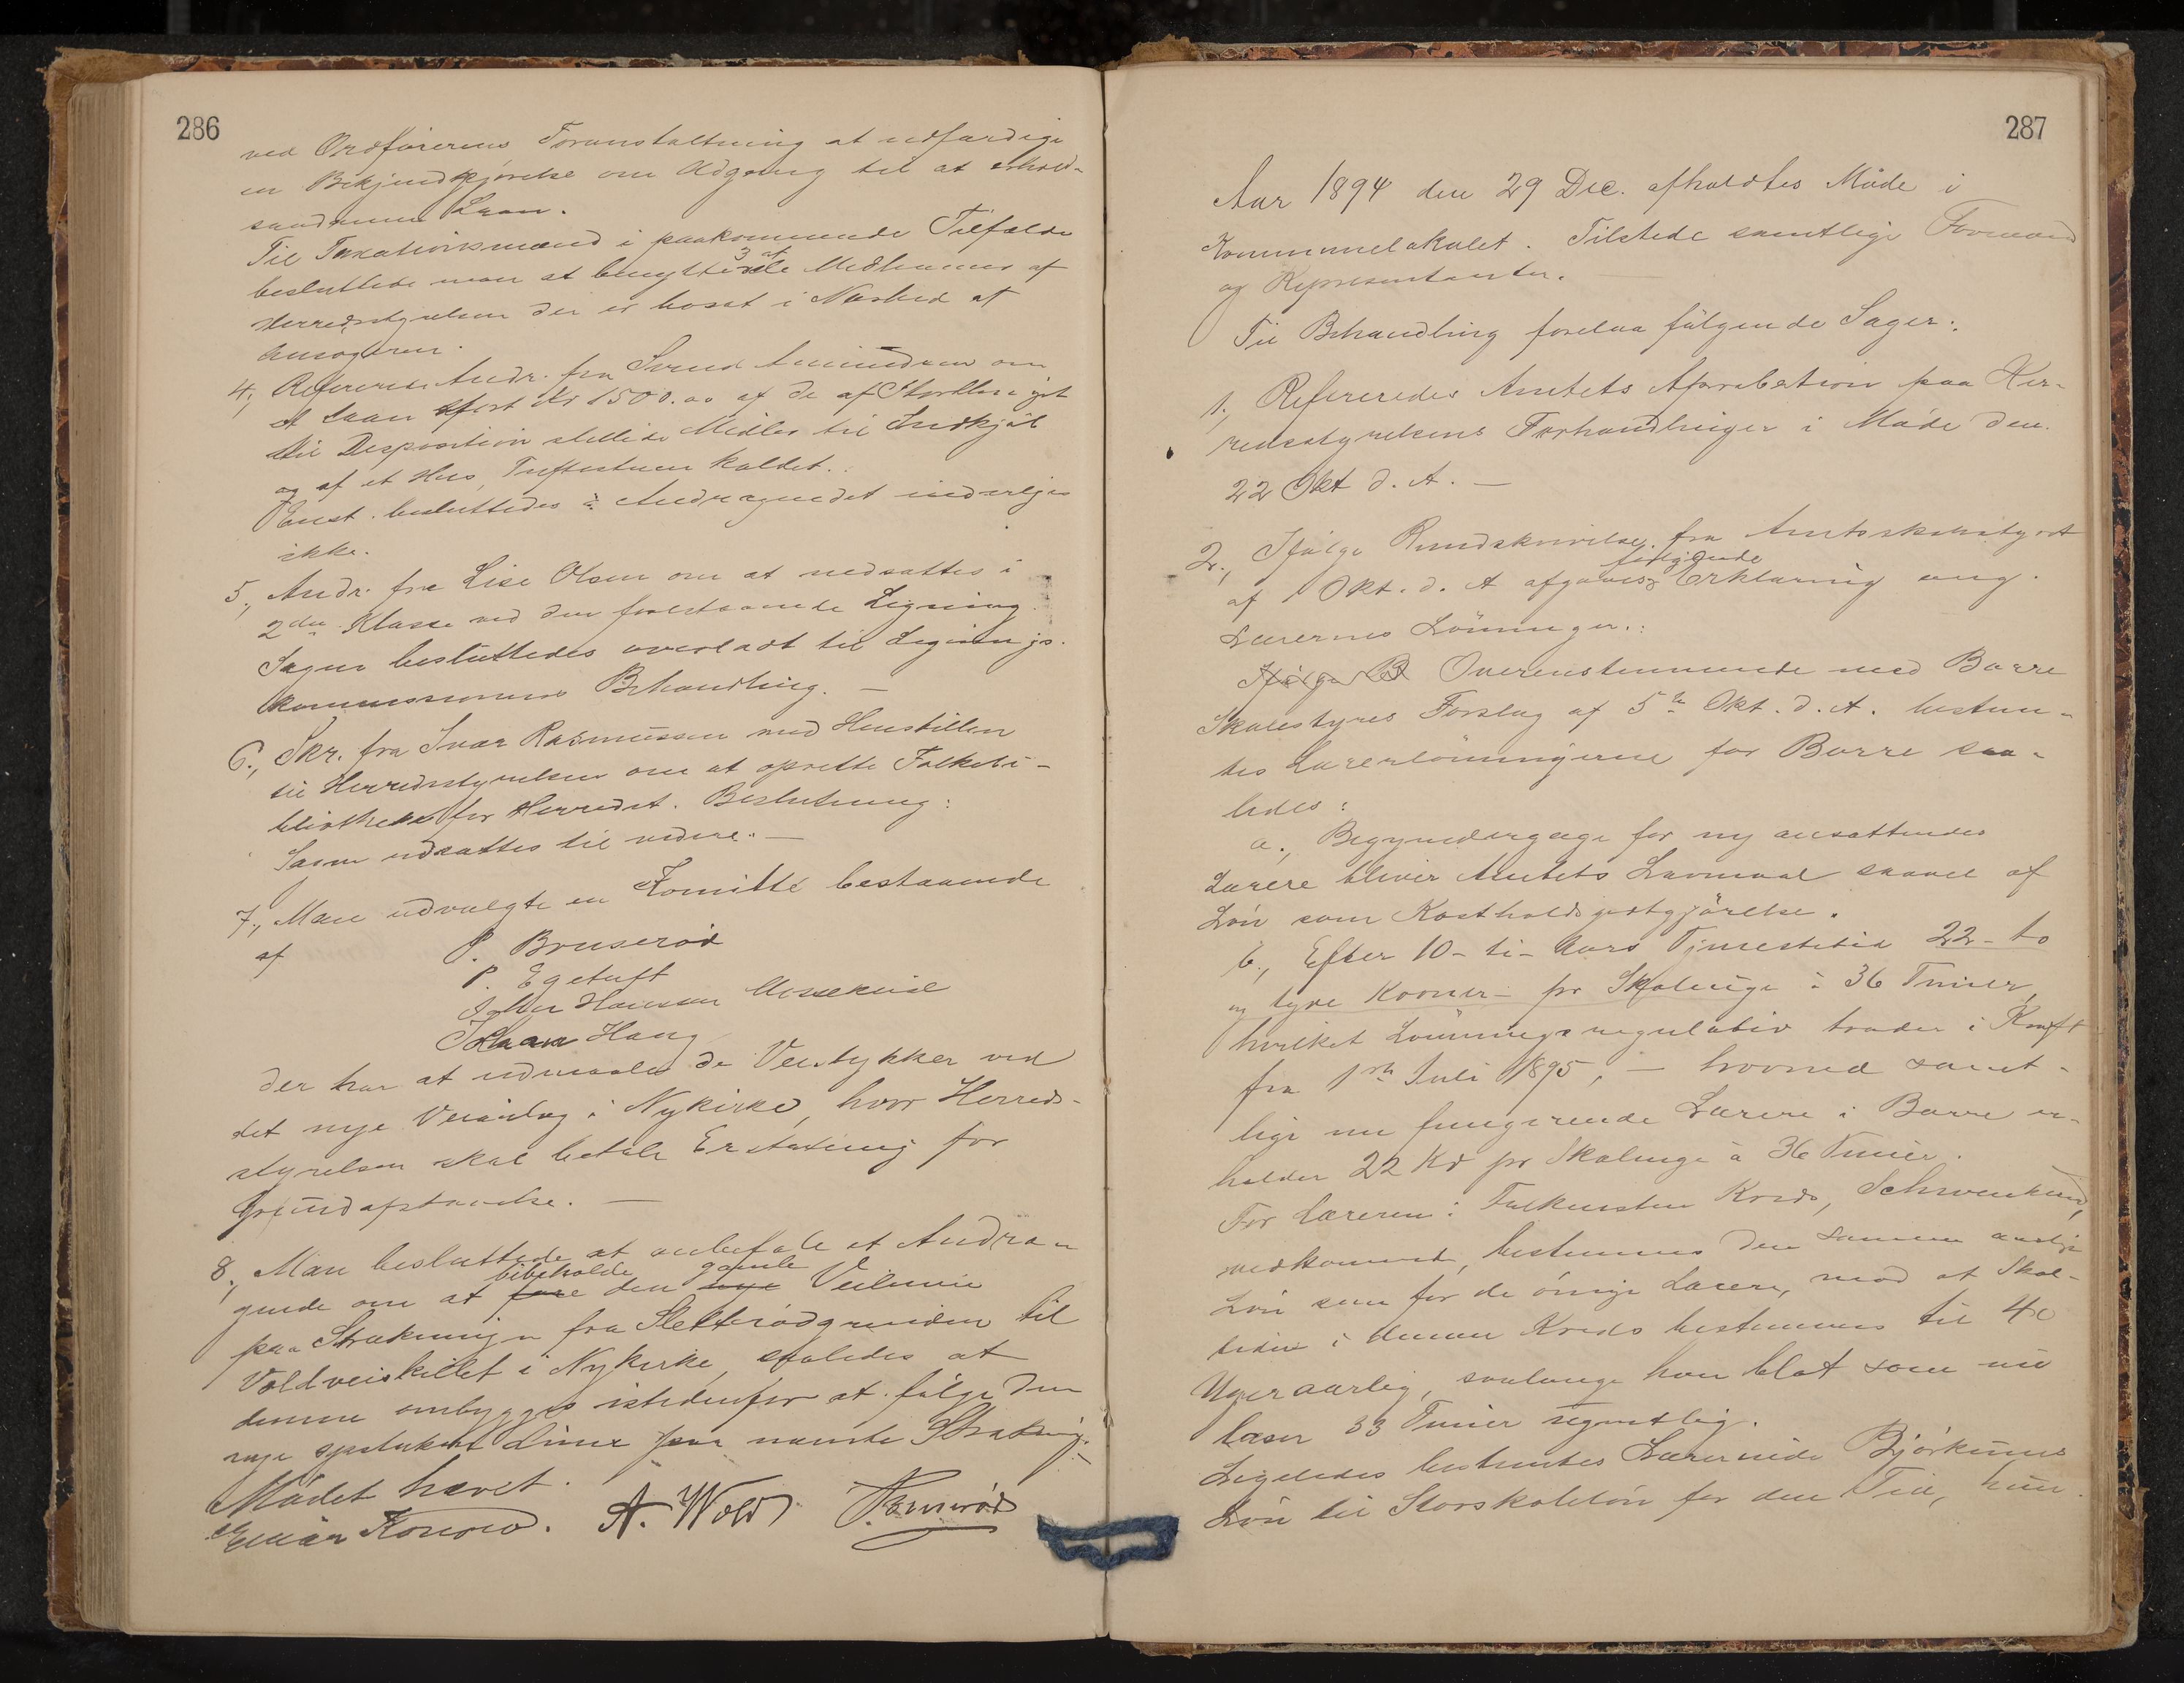 286
ved Ordførerens Foranstaltning at udfærdige
en Bekjendtgjørelse om Adgang til at erhold-
saadanne Laan.
Til Taxationsmænd i paakommende Tilfælde
besluttede man at benytte 3 af de Medlemmer af
Herredsstyrelsen der er bosat i Nærhed af
Ansøgeren.
4, Refereredes Andr. fra Svend Amundsen om
et Laan stort Kr 1500.00 af de af Storthinget
til Disposition stillede Midler til Indkjøb
og af et Hus, Tuftestuen kaldet.
Enst. besluttedes: Andragendet indvilges
ikke.
5, Andr. fra Lise Olsen om at nedsættes i
2den Klasse ved den forestaaende Ligning
Sagen besluttedes overladt til Lignings-
kommissionens Behandling. –
6., Skr. fra Ivar Rasmussen med Henstillen
til Herredsstyrelsen om at oprette Folkebi-
bliothek for Herredet. Beslutning:
Sagen udsættes til videre. –
7, Man udvalgte en Komitté bestaaende
af P. Bruserød
P. Egetuft
Hansen
Johan Haug
der har at udmaale de Veistykker ved
det nye Veianlæg i Nykirke, hvor Herreds-
styrelsen skal betale Erstatning for
Grundafstaaelse. –
8, Man besluttede at anbefale et Andra-
bibeholde gamle
gende om at føre den nye Veilinie
paa Strækningen fra Sletterødgrinden til
Voldveiskillet i Nykirke, saaledes at
denne ombygges istedenfor at følge den
nye opstukne Linie paa nævnte Strækning.
Mødet hævet.
A. Wold P. Bruserød
287
Aar 1894 den 29 Dec. afholdtes Møde i
Kommunelokalet. Tilstede samtlige Formænd
og Repræsentanter.
Til Behandling forelaa følgende Sager:
1, Refereredes Amtets Aprobation paa Her-
redsstyrelsens Forhandlinger i Møde den
22 Okt d. A. –
2., Ifølge Rundskrivelse fra Amtsskolestyret
følgende
af 1 Okt. d. A afgaves Erklæring ang.
Lærernes Lønninger.:
Ifølge B Overenstemmende med Borre
Skolestyres Forslag af 5te Okt. d. A. bestem-
tes Lærerlønningerne for Borre saa-
ledes:
a., Begyndergage for ny ansættendes
Lærere bliver Amtets Lavmaal saavel af
Løn som Kostholdsgodtgjørelse.
b., Efter 10 - ti - Aars Tjenestetid 22 - to
og tyve Kroner - pr Skoleuge à 36 Timer,
hvilket Lønningsregulativ træder i Kraft
fra 1ste Juli 1895, – hvorved samt-
lige nu fungerende Lærere i Borre er-
holder 22 Kr pr Skoleuge à 36 Timer.
For Læreren i Falkensten Kreds, Schwenkes,
vedkommende, bestemmes den samme aarlige
Løn som for de øvrige Lærere, mod at Skole-
tiden i denne Kreds bestemmes til 40
Uger aarlig, saalænge han blot som nu
læser 33 Timer ugentlig.
Ligeledes bestemtes Lærerinde Bjørkums
Løn til Storskoleløn for den Tid, hun